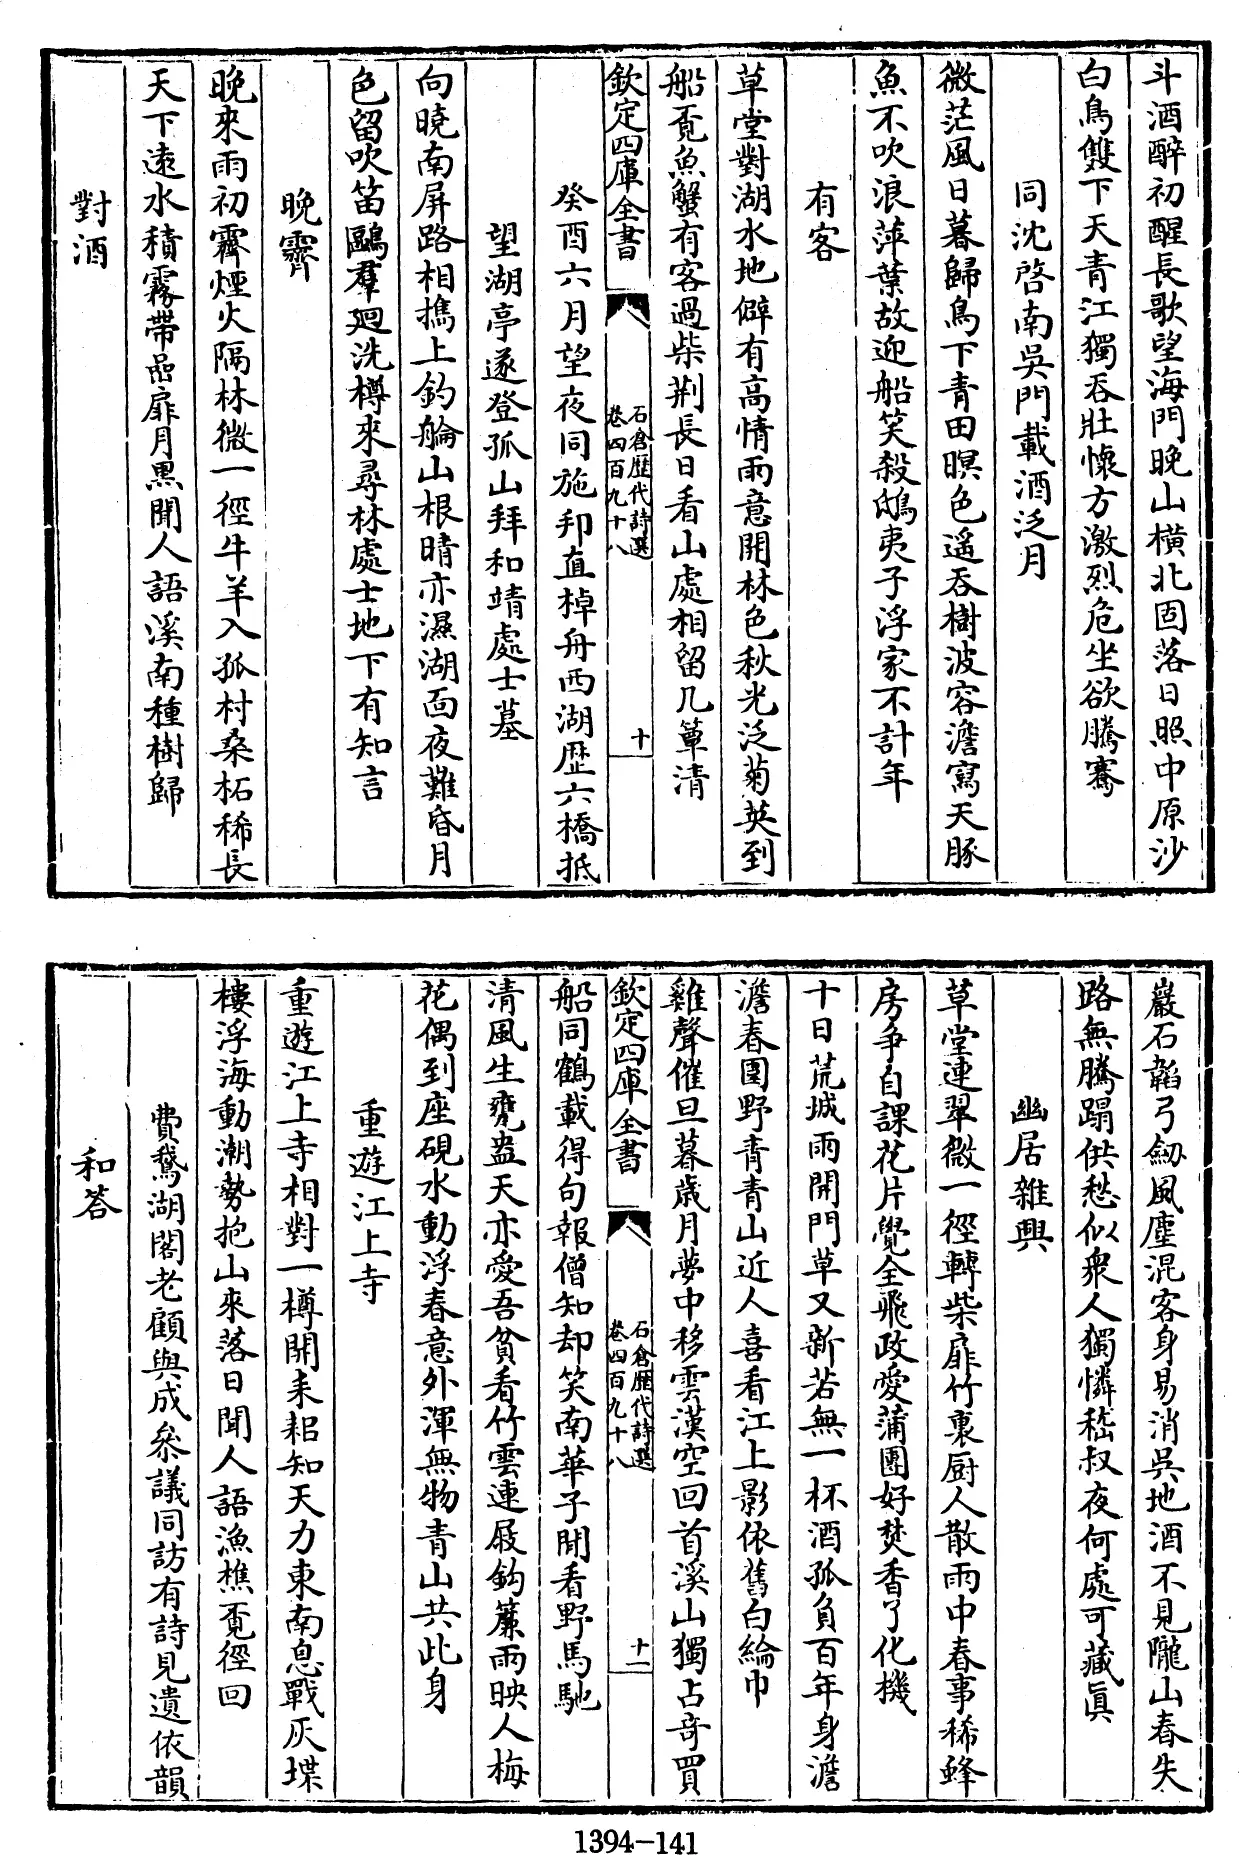 斗酒醉初醒長歌望海門晚山橫北固落日照中原沙
白鳥雙下天青江獨吞壯懷方激烈危坐欲騰騫
同沈啓南吳門載酒泛月
微茫風日暮歸鳥下青田暝色遥吞樹波容澹寫天豚
魚不吹浪萍葉故迎船笑殺鴟夷子浮家不計年
有客
草堂對湖水地僻有高情雨意開林色秋光泛菊英到
船覔魚蟹有客過柴荆長日看山處相留几簟清
欽定四庫全書
石倉歷代詩選
卷四百九十八
十
癸酉六月望夜同施邦直棹舟西湖歷六橋抵
望湖亭遂登孤山拜和靖處士墓
向曉南屏路相擕上釣艫山根晴亦濕湖面夜難昏月
色留吹笛鷗羣廻洗樽來尋林處士地下有知言
晚霽
晚來雨初霽煙火隔林微一徑牛羊入孤村桑柘稀長
天下逺水積霧帶喦扉月黑聞人語溪南種樹歸
對酒
巖石韜弓劒風塵混客身易消吳地酒不見隴山春失
路無騰蹋供愁似衆人獨憐嵇叔夜何處可藏眞
幽居雜興
草堂連翠微一徑轉柴扉竹裏厨人散雨中春事稀蜂
房爭自課花片覺全飛政愛蒲團好焚香了化機
十日荒城雨開門草又新若無一杯酒孤負百年身澹
澹春園野青青山近人喜看江上影依舊白綸巾
雞聲催旦暮歲月夢中移雲漢空回首溪山獨占奇買
欽定四庫全書
石倉歷代詩選
卷四百九十八
十一
船同鶴載得句報僧知却笑南華子閒看野馬馳
清風生甕盎天亦愛吾貧看竹雲連屐鈎簾雨映人梅
花偶到座硯水動浮春意外渾無物青山共此身
重遊江上寺
重遊江上寺相對一樽開耒耜知天力東南息戰灰堞
樓浮海動潮勢抱山來落日聞人語漁樵覔徑回
費鵞湖閣老顧與成叅議同訪有詩見遺依韻
和答
1394-141